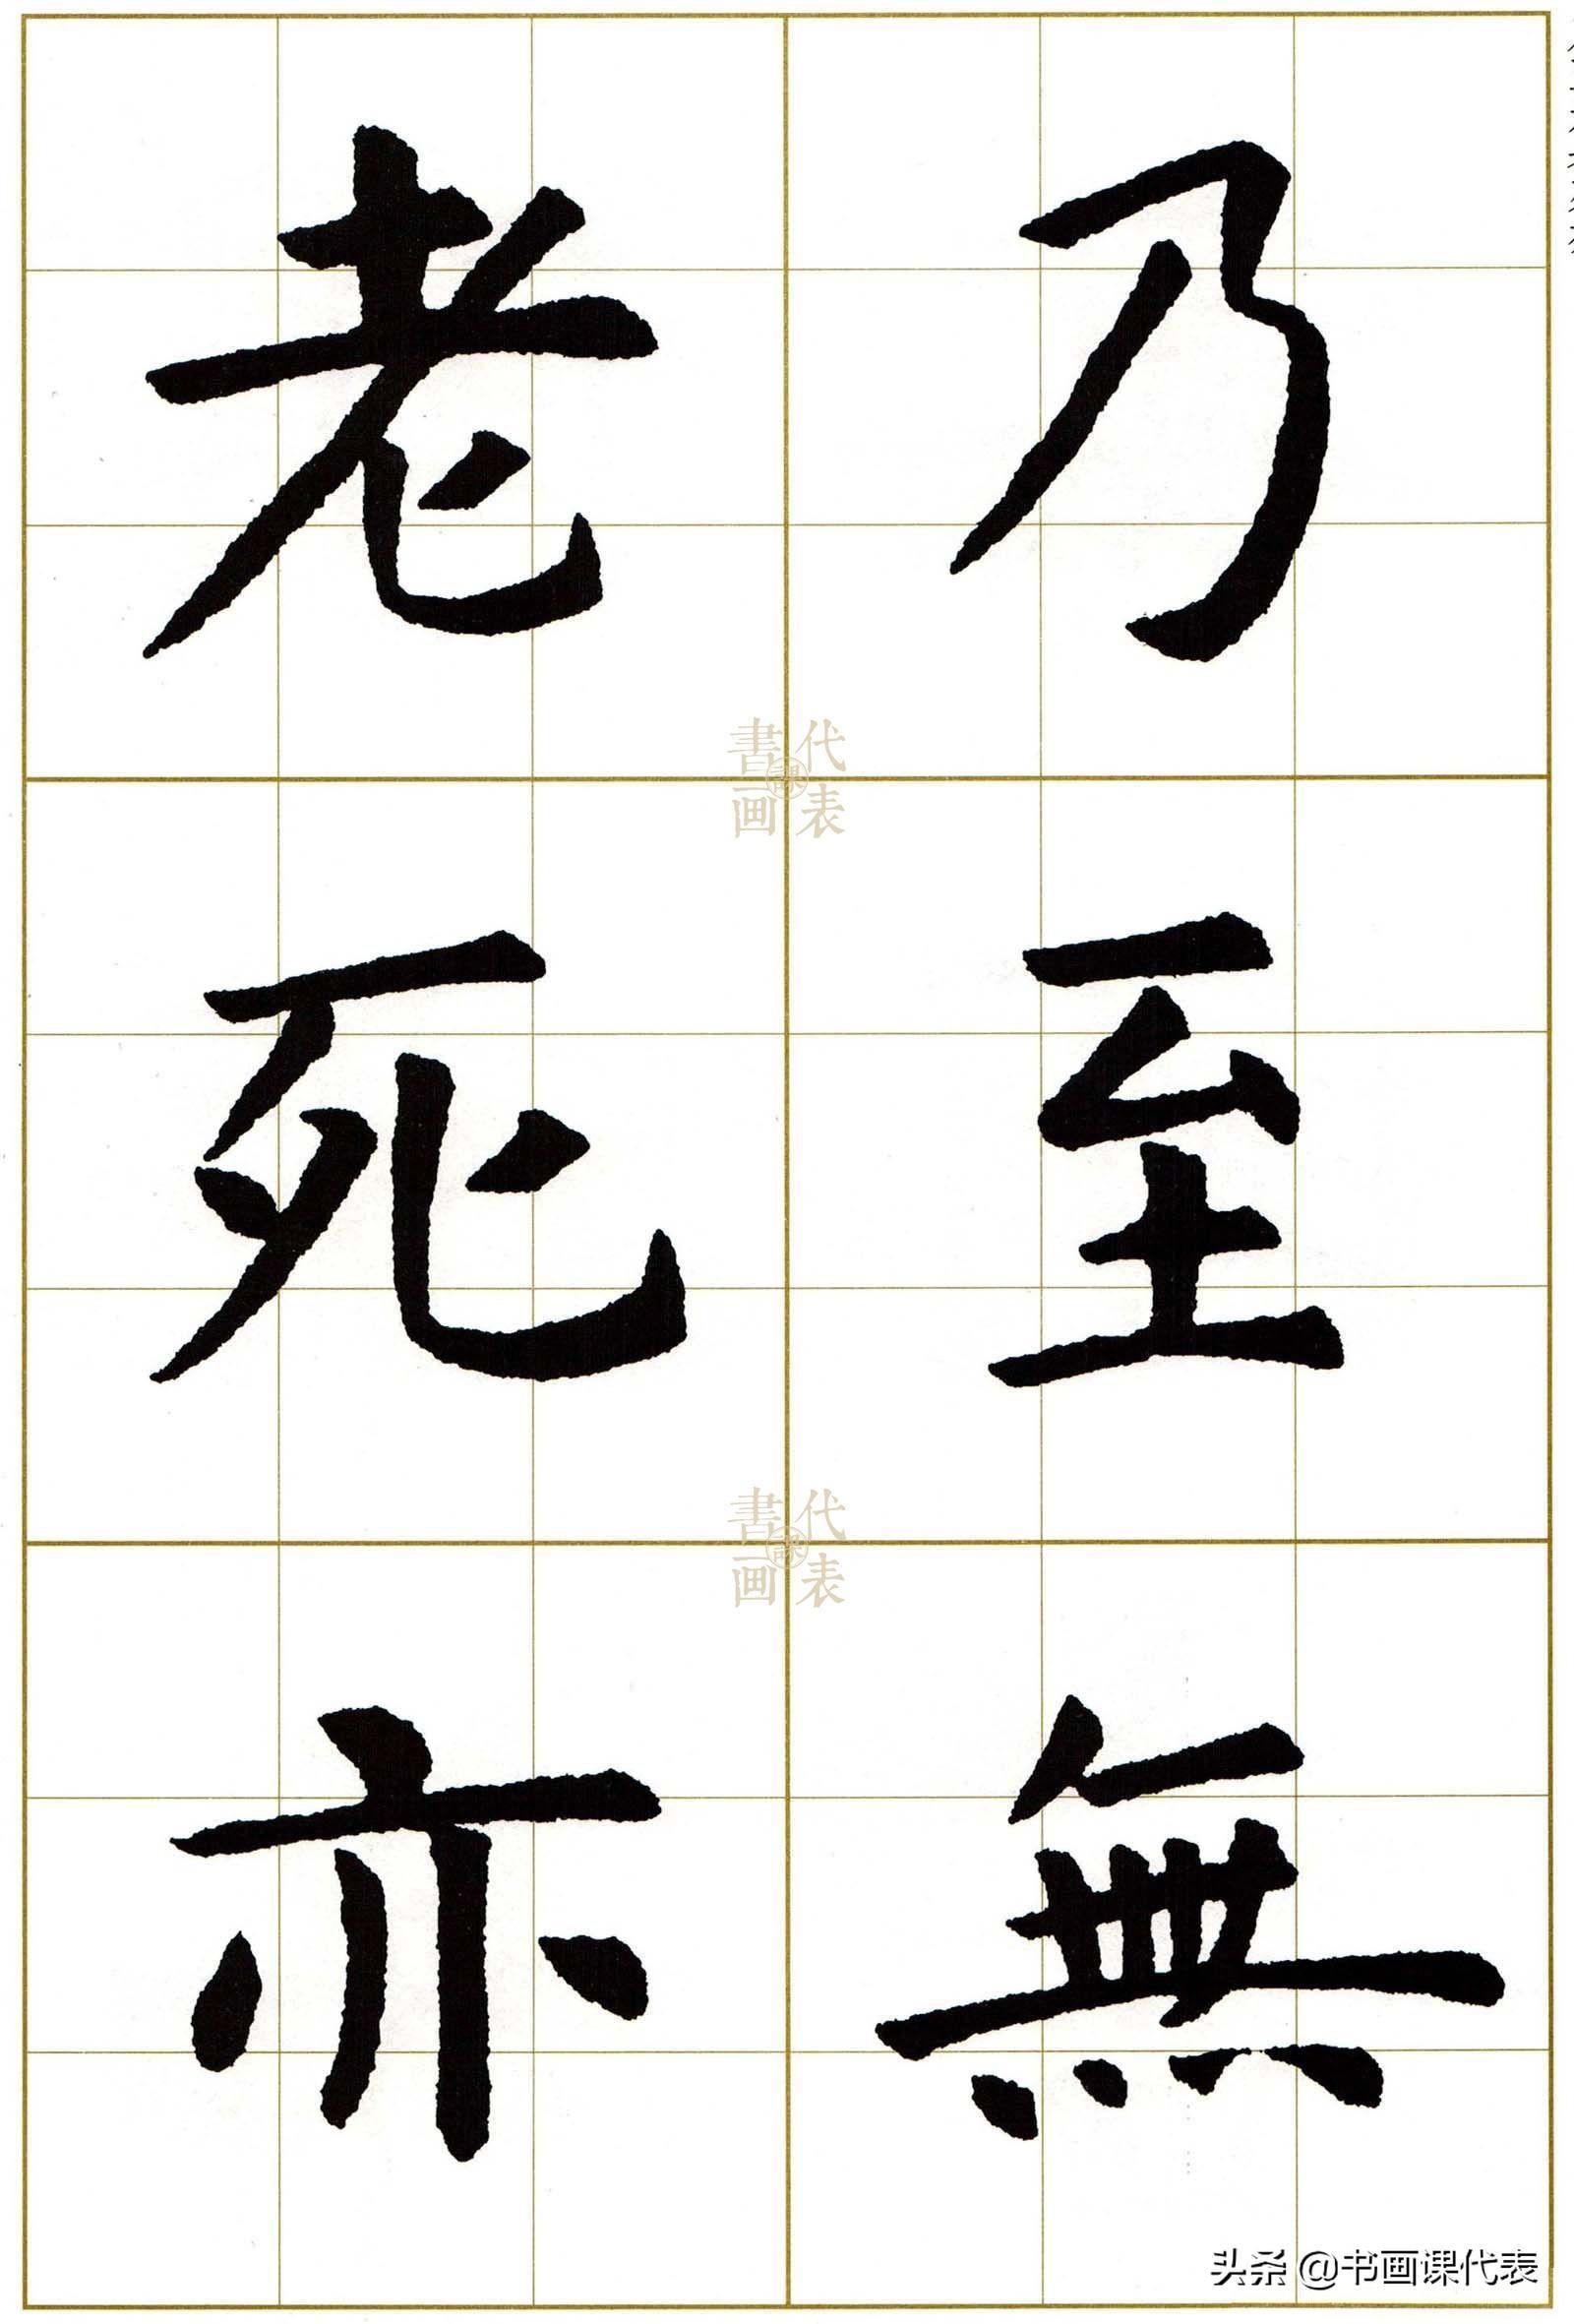 乃至無
老死亦
書画課代表
書画課代表
头条 @书画课代表